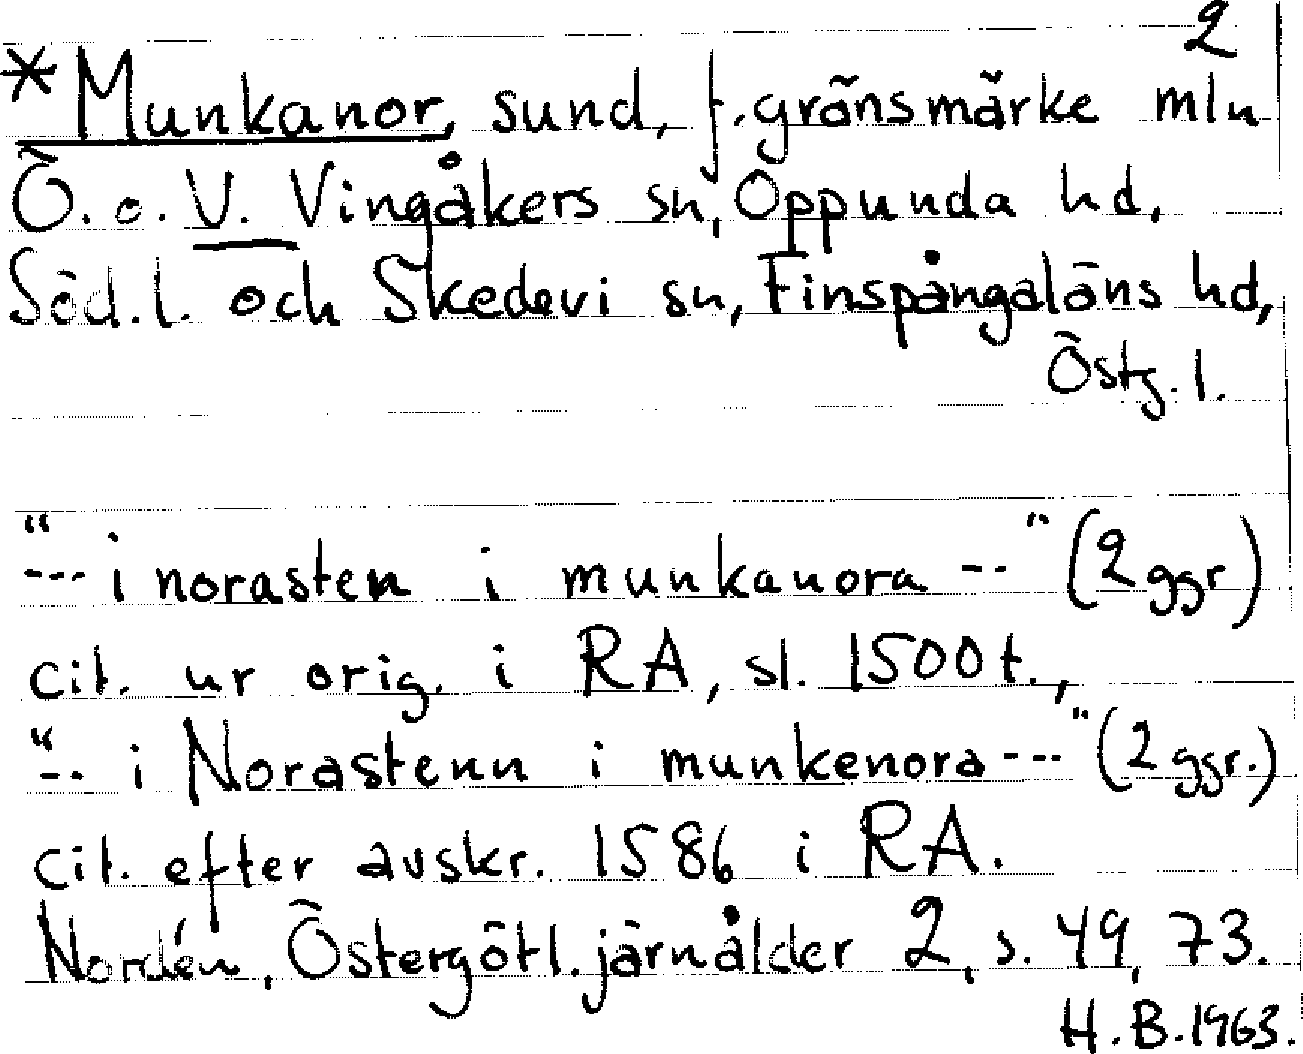 2
*Munkanor, sund, f. gränsmärke mln
Ö. o. V. Vingåkers sn, Oppunda hd,
Söd. l. och Skedevi sn, Finspångaläns hd,
Östg. l.
"--- i norasten i munkanora --" (2 ggr)
cit. ur orig. i RA, sl. 1500 t.,
"-- i Norastenn i munkenora---" (2 ggr.)
cit. efter avskr. 1586 i RA.
Nordén, Östergötl. järnålder 2, s. 49, 73.
H. B. 1963.